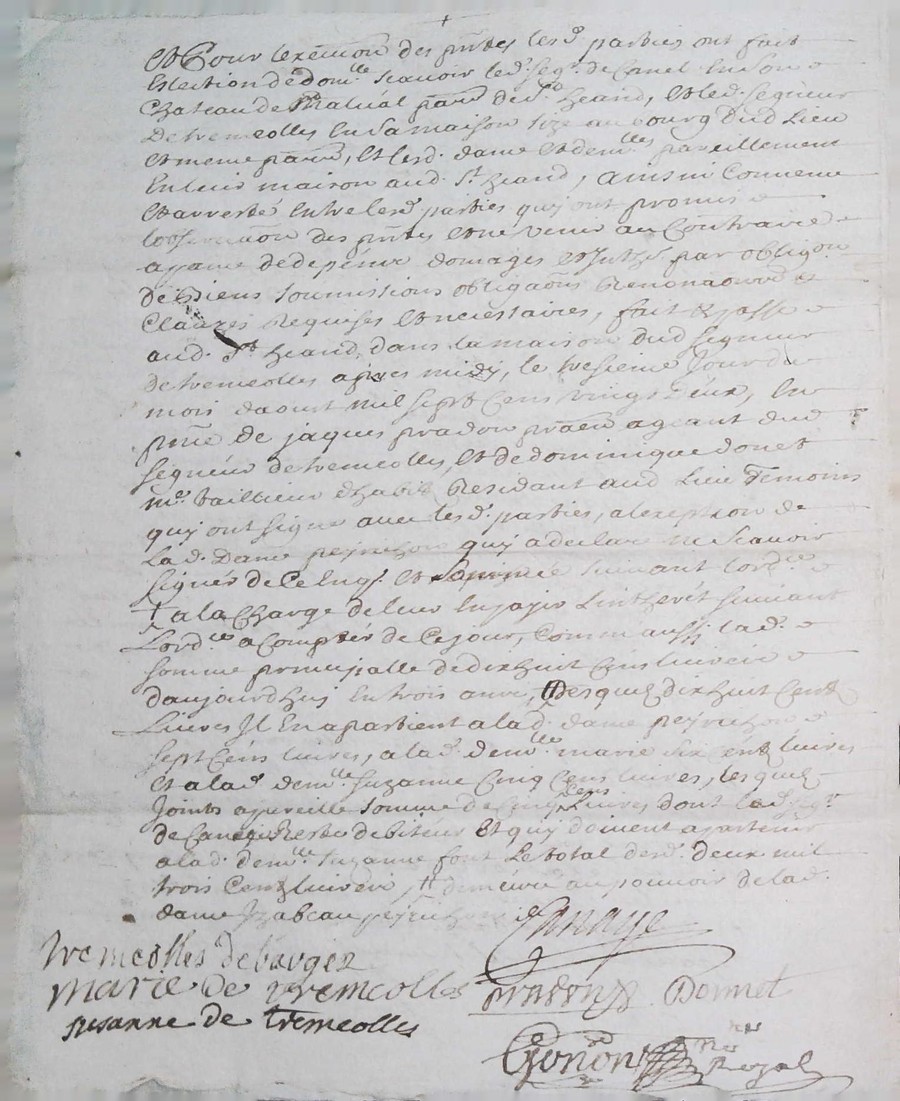 Et Pour lexẽcuõn des pñtes lesd. parties ont fait
Eslection de domlle scavoir led. segr. de Canel En son
Chateau de Malual parre de St. heand, et led. seigneur
De tremeolles En sa maison size au bourg dud Lieu
Et meme parre, et lesd. dame et demlles pareillement
En leur maison aud. St heand, Ainsin Convenu
Et arresté Entre lesd. parties quy ont promis
lobservaõn des pñtes et ne venir au Contraire
a peine de depens domages et par obligõn
de biens soumissions obligaõns Renonaõns &
Clauzes Requises et necessaires, fait & passé
aud. St heand, dans la maison dud seigneur
de tremeolles apres midy, le tresieme Jour du
mois daoust mil sept Cens vingt Deux, En
pñce de jaques pradon praãen ageant dud
seigneur de tremeolles, et de dominique donet
me. taillieur dhabit Residant aud Lieu Temoins
quy ont signé avec lesd. parties, a lexeption de
La d. Dame peyrichon quy a declaré ne scavoir
signer de Ce Enq. et sommée suivant lordce
† a la Charge de leur En payer Lintherét suivant
Lordce a Compter de Ce jour, Comm aussi lad.
somme principalle de dix huit Cens livres
daujourdhuy En trois ans, # desquels dix huit Cens
Livres Il En apartient a lad. dame peyrichon
sept Cens livres, a lad. demlle marie six Cens livres
et a lad. demlle suzanne Cinq Cens livres, lesquels
Joints a pareille somme de Cinq Cens Livres dont led. segr.
de Canel Reste debiteur et quy doivent apartenir
a lad. demlle suzanne font Le total desd. deux mil
trois Cens livres, # demeuré au pouvoir de lad.
dame Izabeau peyrichon
Tremeolles de barges
marie de tremeolles pradon Donnet
susanne de Tremeolles
Gonon nre Royal